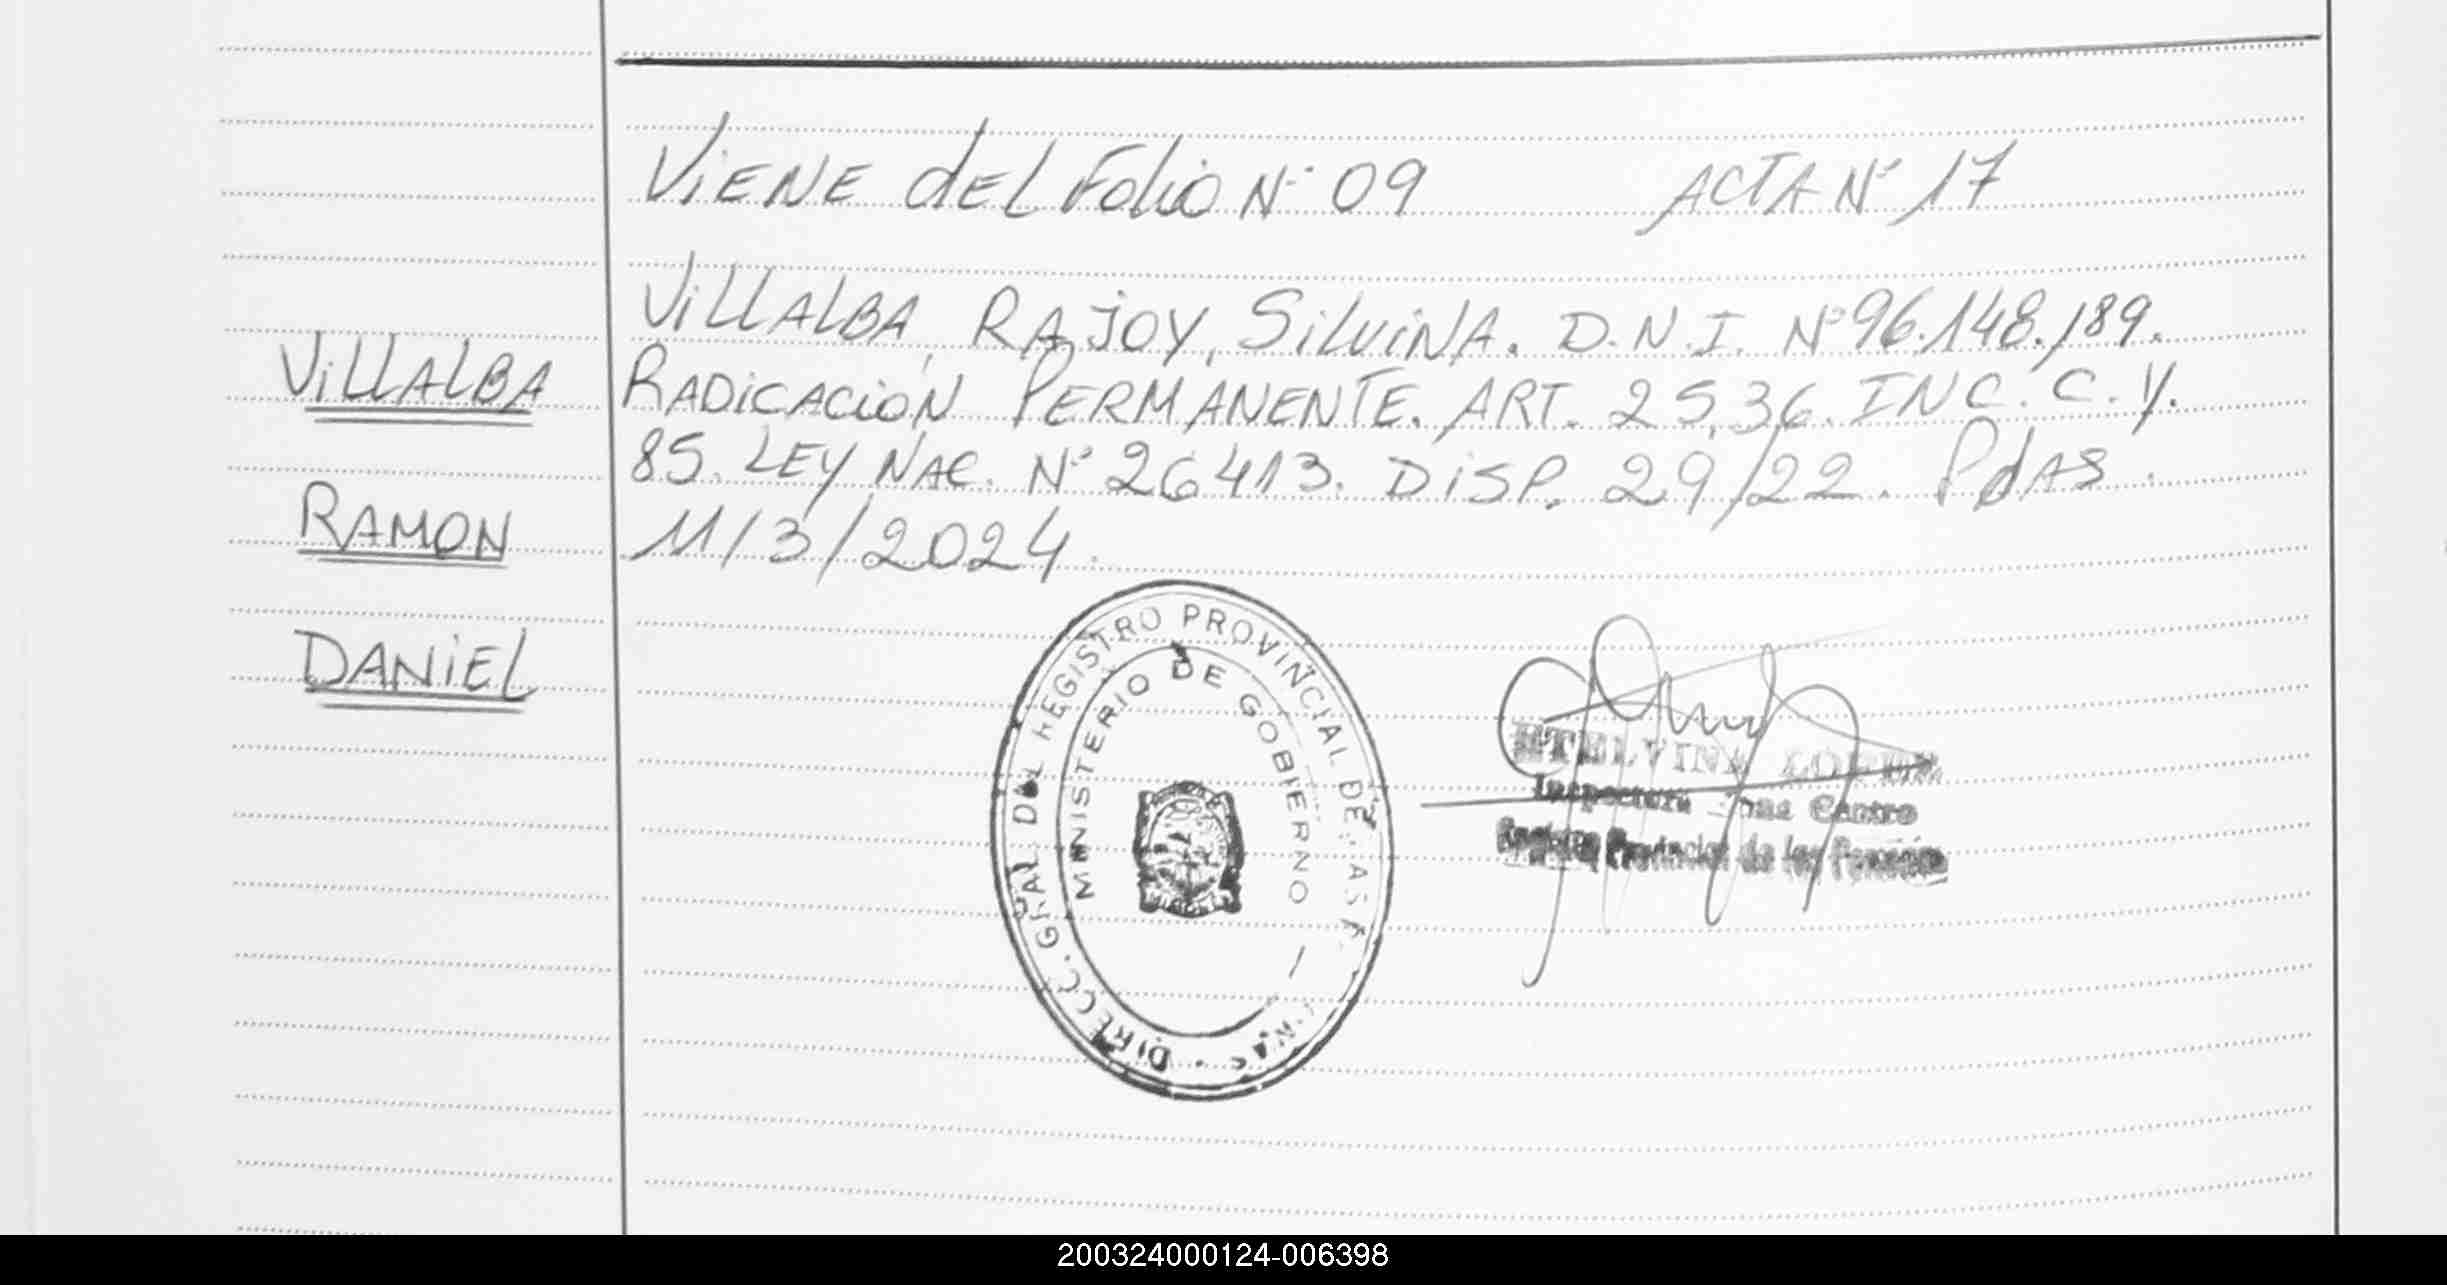 ViENE dEL Folio N° 09 ACTA N° 17
ViLLALBA, RAJOY, SiLViNA. D.N.I. N° 96.148.189.
RADiCACiÓN PERMANENTE. ART. 25,36. INC. C. Y.
85. LEY NAC. N° 26413. DiSP. 29/22. PdAS.
11/3/2024.
ViLLALBA
RAMON
DANiEL
DIRECC. GRAL. DEL REGISTRO PROVINCIAL DE
MINISTERIO DE GOBIERNO
ETELVINA LOPEZ
Inspectora Zona Centro
Registro Provincial de las Personas
200324000124-006398